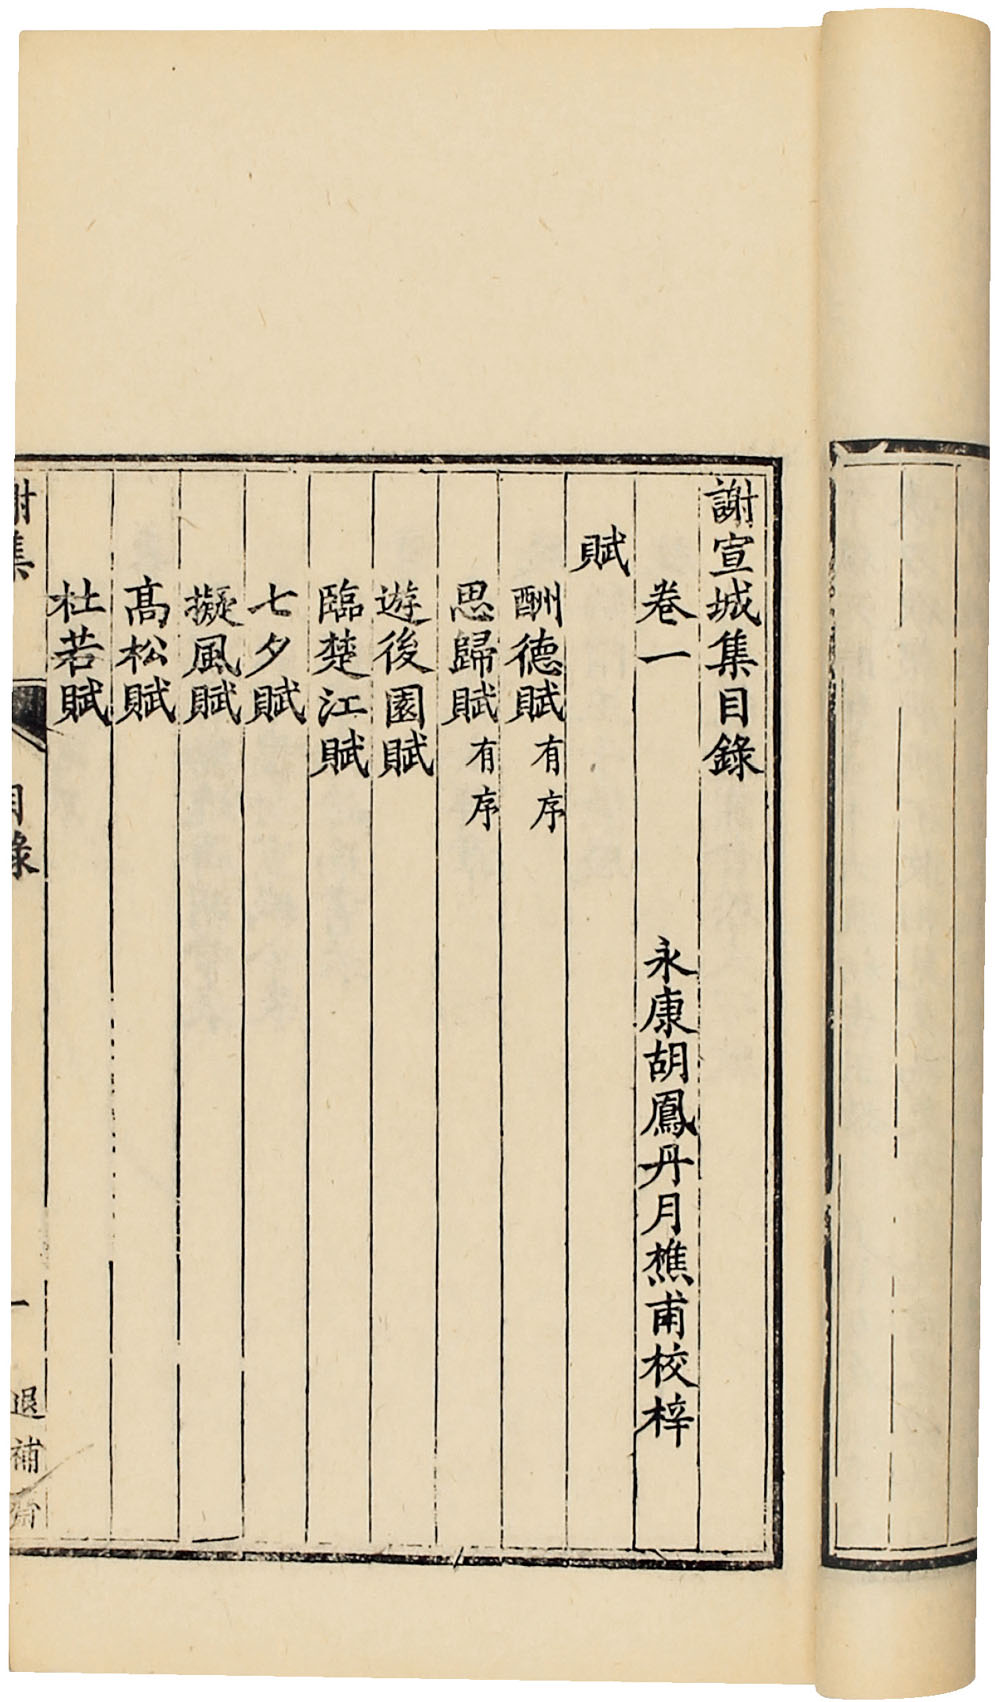 謝宣城集目錄
卷一 永康胡鳳丹月樵甫校梓
賦
酬德賦有序
思歸賦有序
遊後園賦
臨楚江賦
七夕賦
擬風賦
高松賦
杜若賦
謝集 目錄 一 退補齋